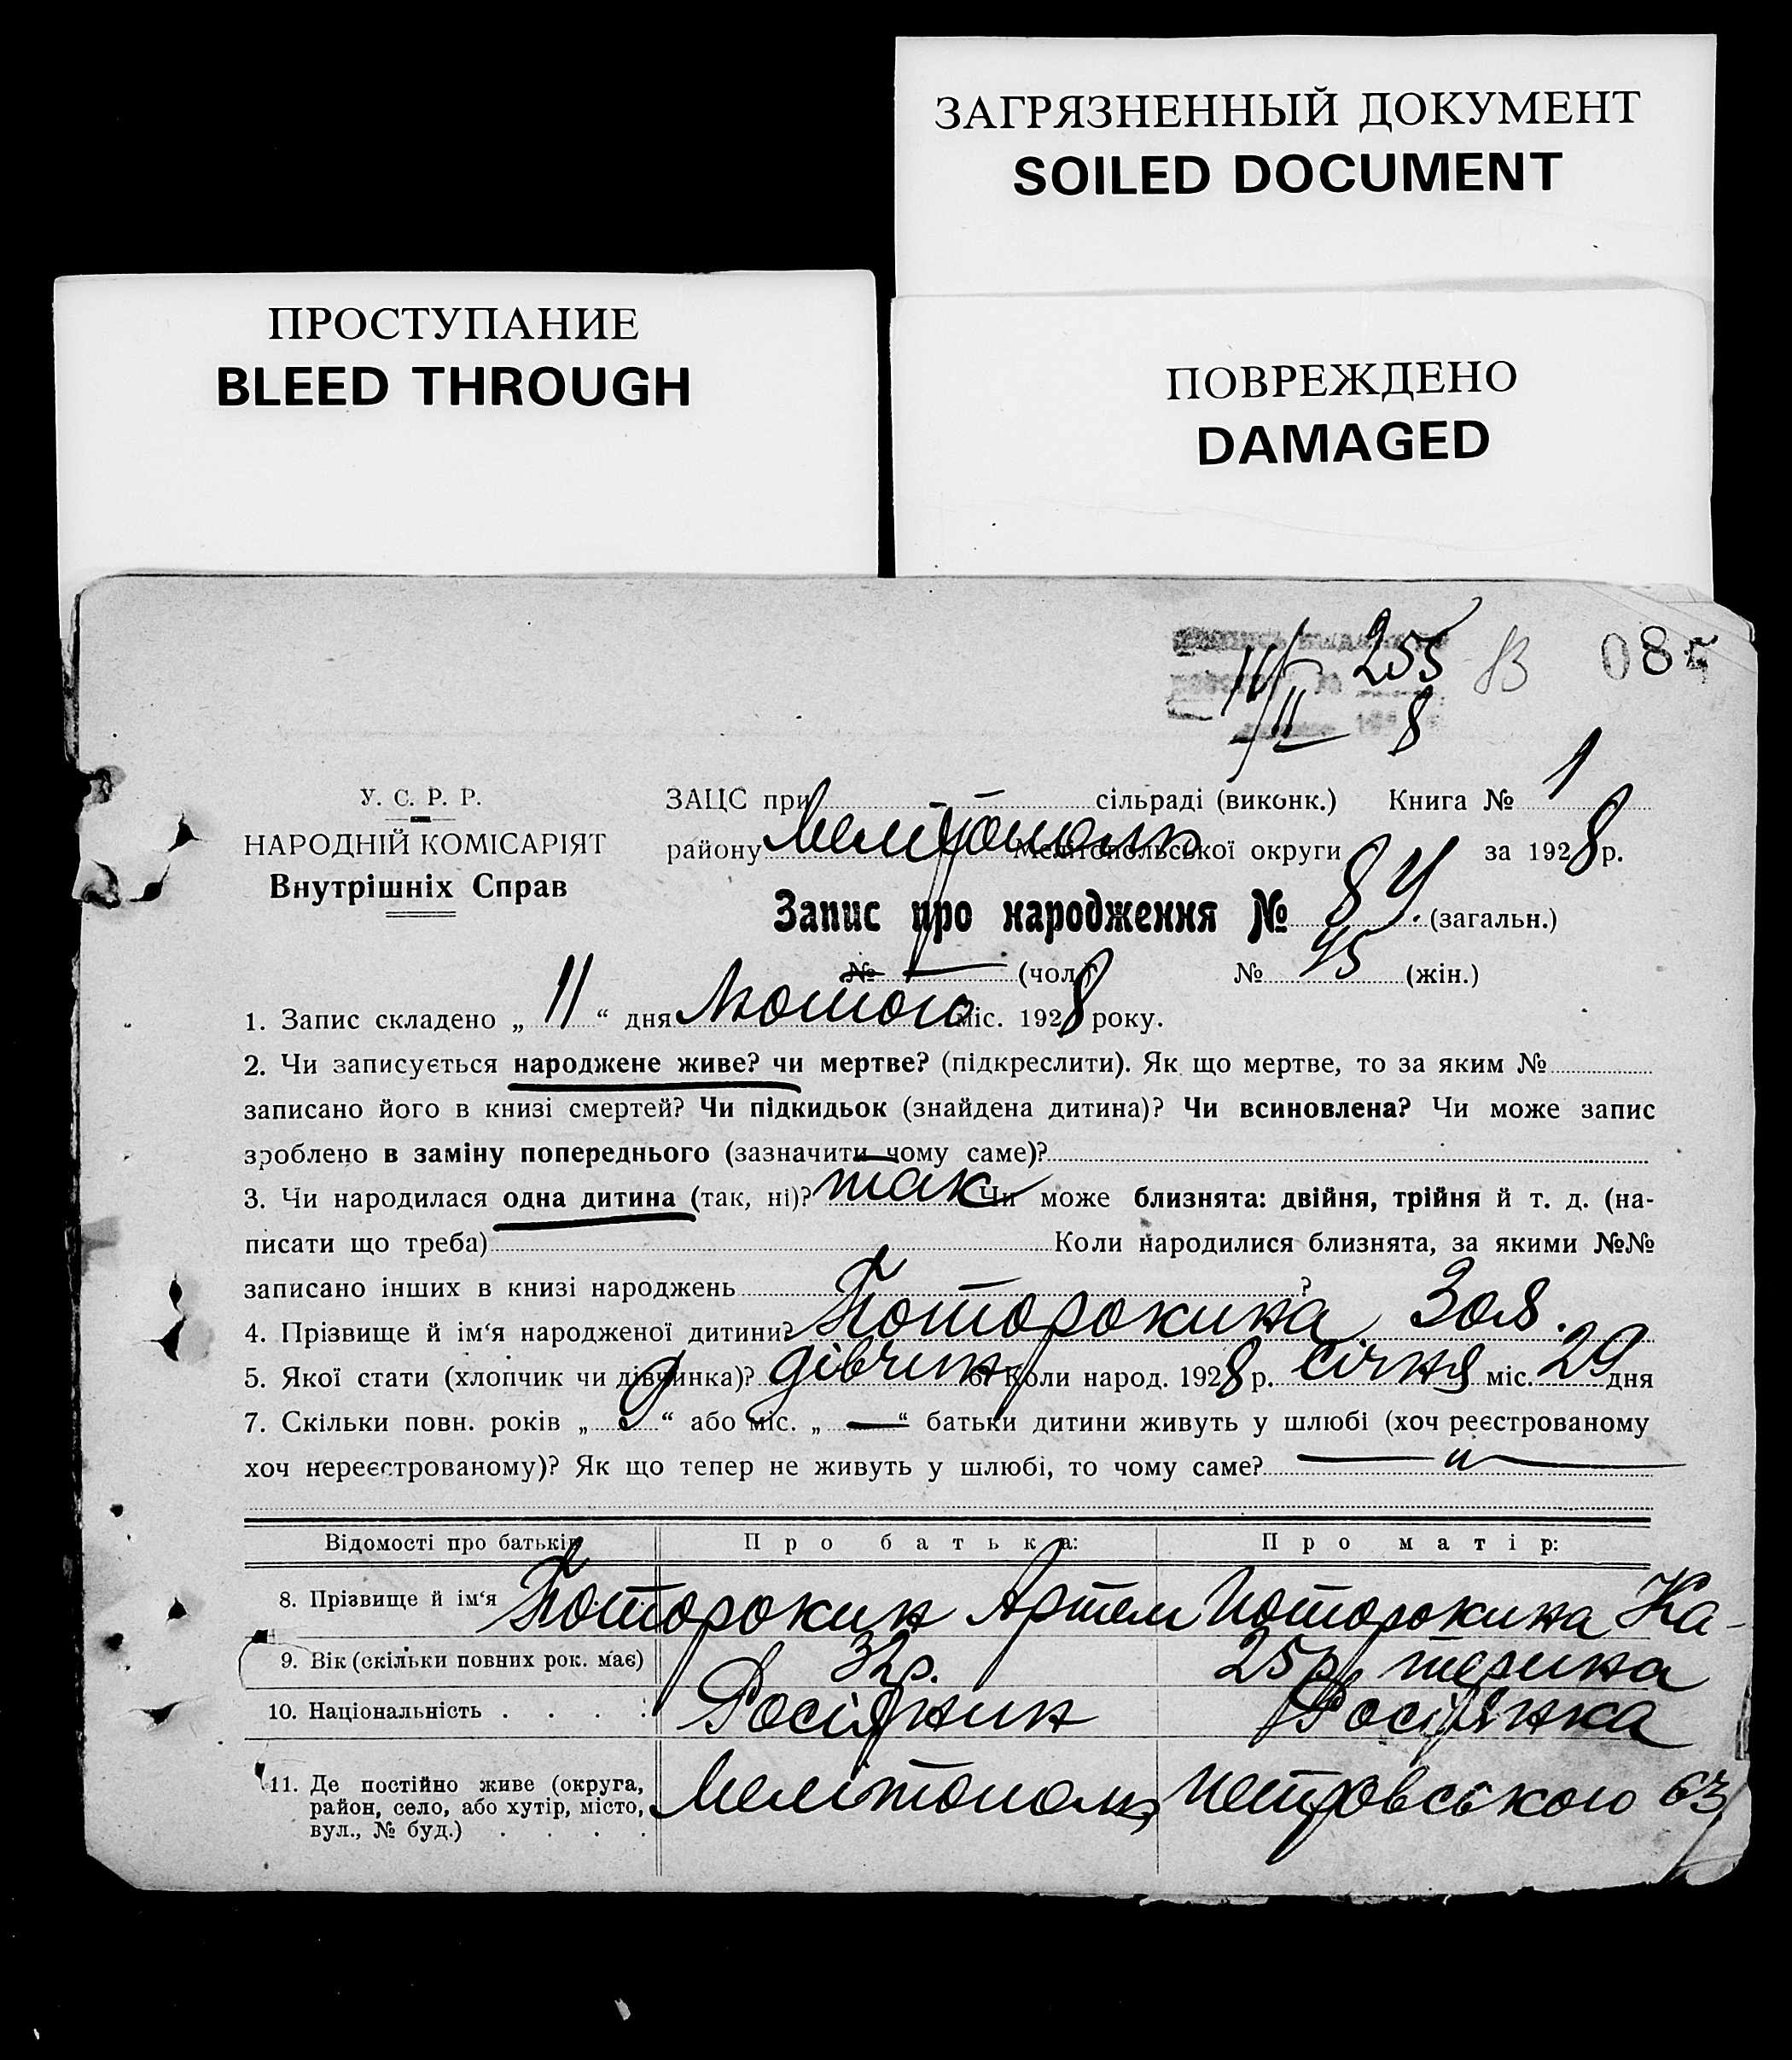 ЗАГРЯЗНЕННЫЙ ДОКУМЕНТ
SOILED DOCUMENT
ПРОСТУПАНИЕ
BLEED THROUGH
ПОВРЕЖДЕНО
DAMAGED
255 085
11/II 8
У. С. Р. Р.
НАРОДНІЙ КОМІСАРІЯТ
Внутрішніх Справ
ЗАЦС при — сільраді (виконк.) Книга № 1
району Мелітополь Мелітопольської округи за 1928 р.
Запис про народження № 84. (загальн.)
№ — (чол.) № 45 (жін.)
1. Запис складено „11“ дня Лютого міс. 1928 року.
2. Чи записується народжене живе? чи мертве? (підкреслити). Як що мертве, то за яким №
записано його в книзі смертей? Чи підкидьок (знайдена дитина)? Чи всиновлена? Чи може запис
зроблено в заміну попереднього (зазначити чому саме)?
3. Чи народилася одна дитина (так, ні)? так Чи може близнята: двійня, трійня й т. д. (на-
писати що треба) Коли народилися близнята, за якими №№
записано інших в книзі народжень ?
4. Прізвище й ім‘я народженої дитини? Поторокина Зоя.
5. Якої стати (хлопчик чи дівчинка)? дівчинк 6. Коли народ. 1928 р. січня міс. 29 дня
7. Скільки повн. років „ “ або міс. „—“ батьки дитини живуть у шлюбі (хоч реєстрованому
хоч нереєстрованому)? Як що тепер не живуть у шлюбі, то чому саме? — „ —
Відомості про батьків Про батька: Про матір:
8. Прізвище й ім‘я Поторокин Артем Поторокина Ка-
9. Вік (скільки повних рок. має) 32 р. 25 р. терина
10. Національність . . . . Росіянин Росіянка
11. Де постійно живе (округа,
район, село, або хутір, місто,
вул., № буд.) . . . .
Мелітополь, Петровського 63